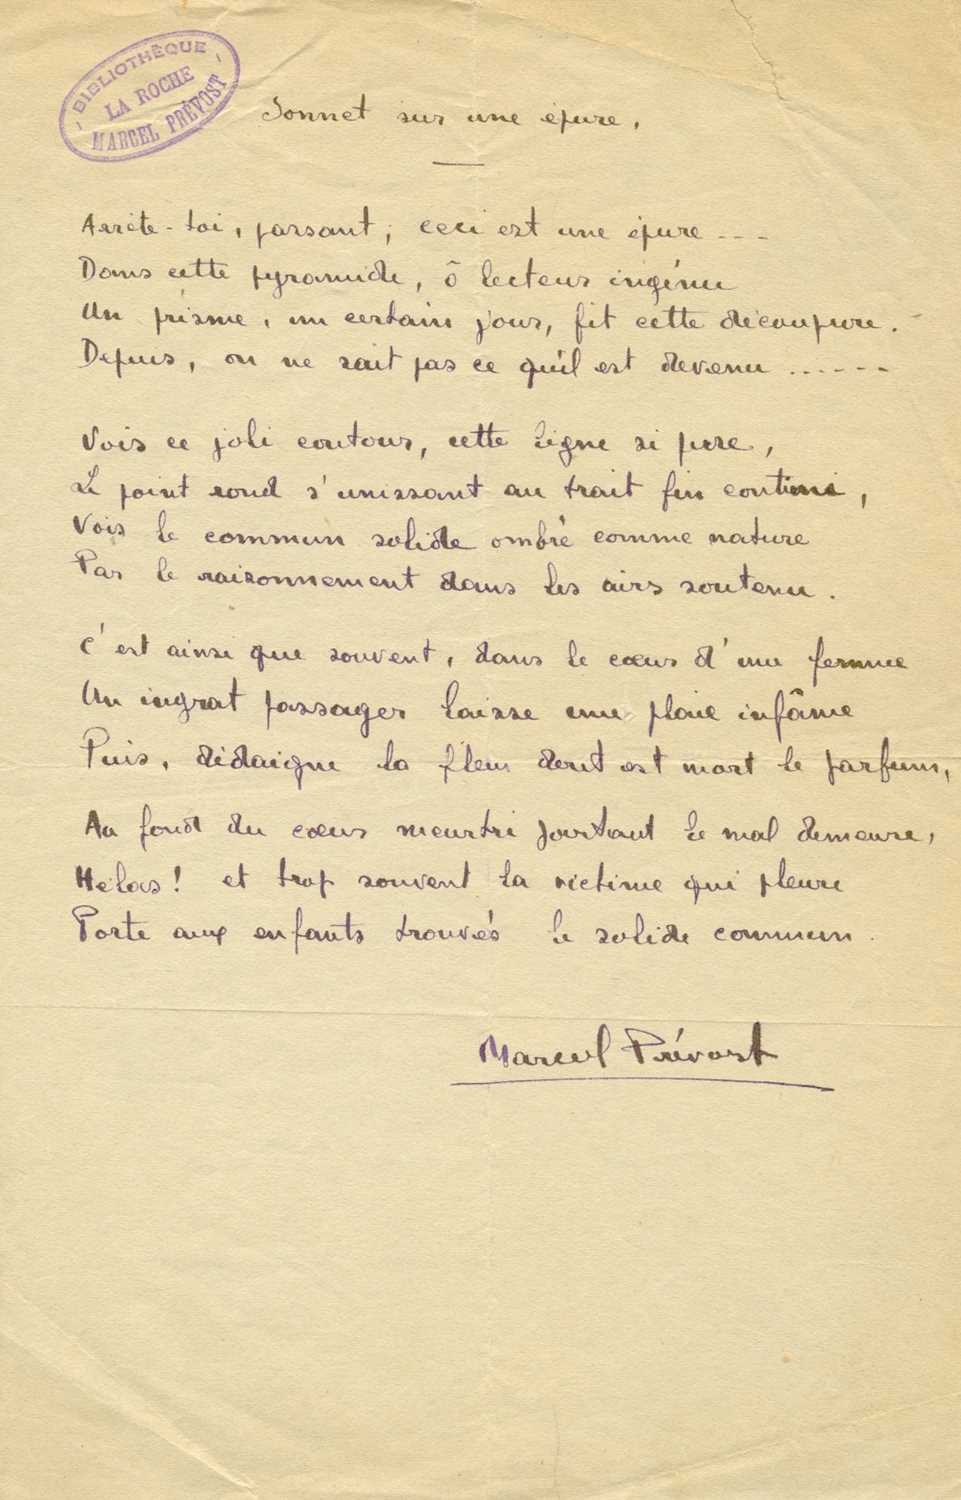 - BIBLIOTHÈQUE -
LA ROCHE
MARCEL PRÉVOST
Sonnet sur une épure.
Arrête-toi, passant, ceci est une épure ---
Dans cette pyramide, ô lecteur ingénu
Un prisme, un certain jour, fit cette découpure.
Depuis, on ne sait pas ce qu'il est devenu ......
Vois ce joli contour, cette ligne si pure,
Le point rond s'unissant au trait fin continu,
Vois le commun solide ombré comme nature
Par le raisonnement dans les airs soutenu.
C'est ainsi que souvent, dans le cœur d'une femme
Un ingrat passager laisse une plaie infâme
Puis, dédaigne la fleur dont est mort le parfum,
Au fond du cœur meurtri pourtant le mal demeure,
Hélas! et trop souvent la victime qui pleure
Porte aux enfants trouvés le solide commun.
Marcel Prévost